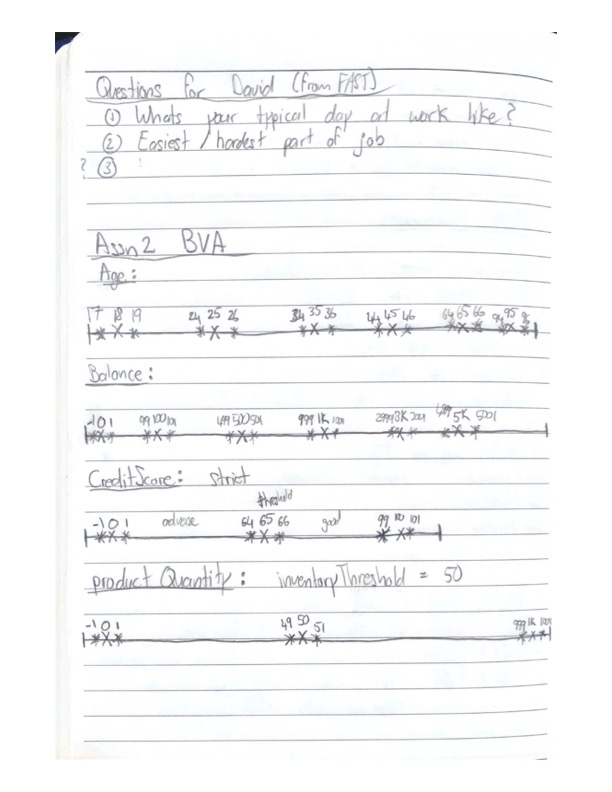 Questions for David (from FAST)
① Whats your typical day at work like?
② Easiest / hardest part of job
? ③
Assn 2 BVA
Age:
17 18 19 24 25 26 34 35 36 44 45 46 64 65 66 94 95 96
Balance:
-1 0 1 99 100 101 499 500 501 999 1K 1001 2999 3K 5K 5001
CreditScore: strict
threshold
-1 0 1 adverse 64 65 66 good 99 100 101
product Quantity: inventoryThreshold = 50
-1 0 1 49 50 51 999 1K 1001